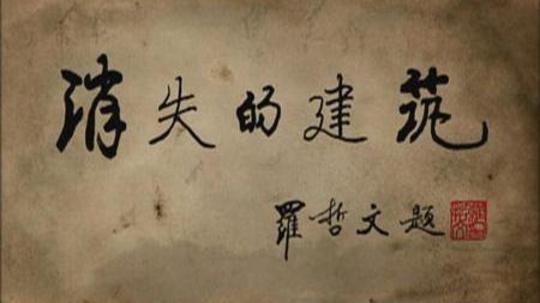 消失的建筑
羅哲文題